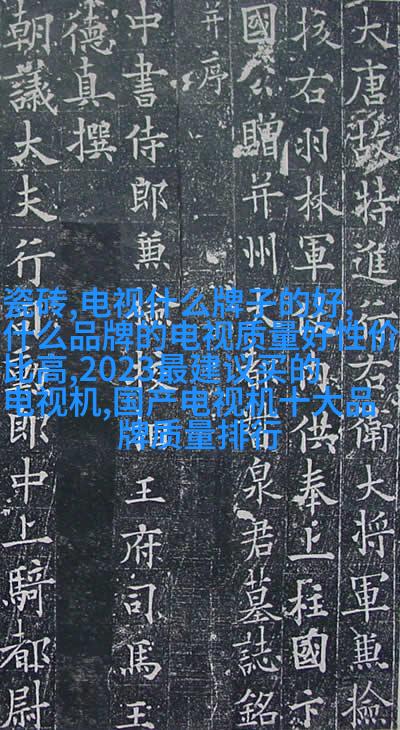 瓷砖,电视什么牌子的好,
什么品牌的电视质量好性价
比高,2023最建议买的
电视机,国产电视机十大品
牌质量排行
大唐故特進行右衛大將軍兼檢
挍右羽林軍內供奉上柱國卞
國公贈并州大都督泉君墓誌銘
并序
中書侍郎兼檢挍相王府司馬王
德真撰
朝議大夫行司勳郎中上騎都尉